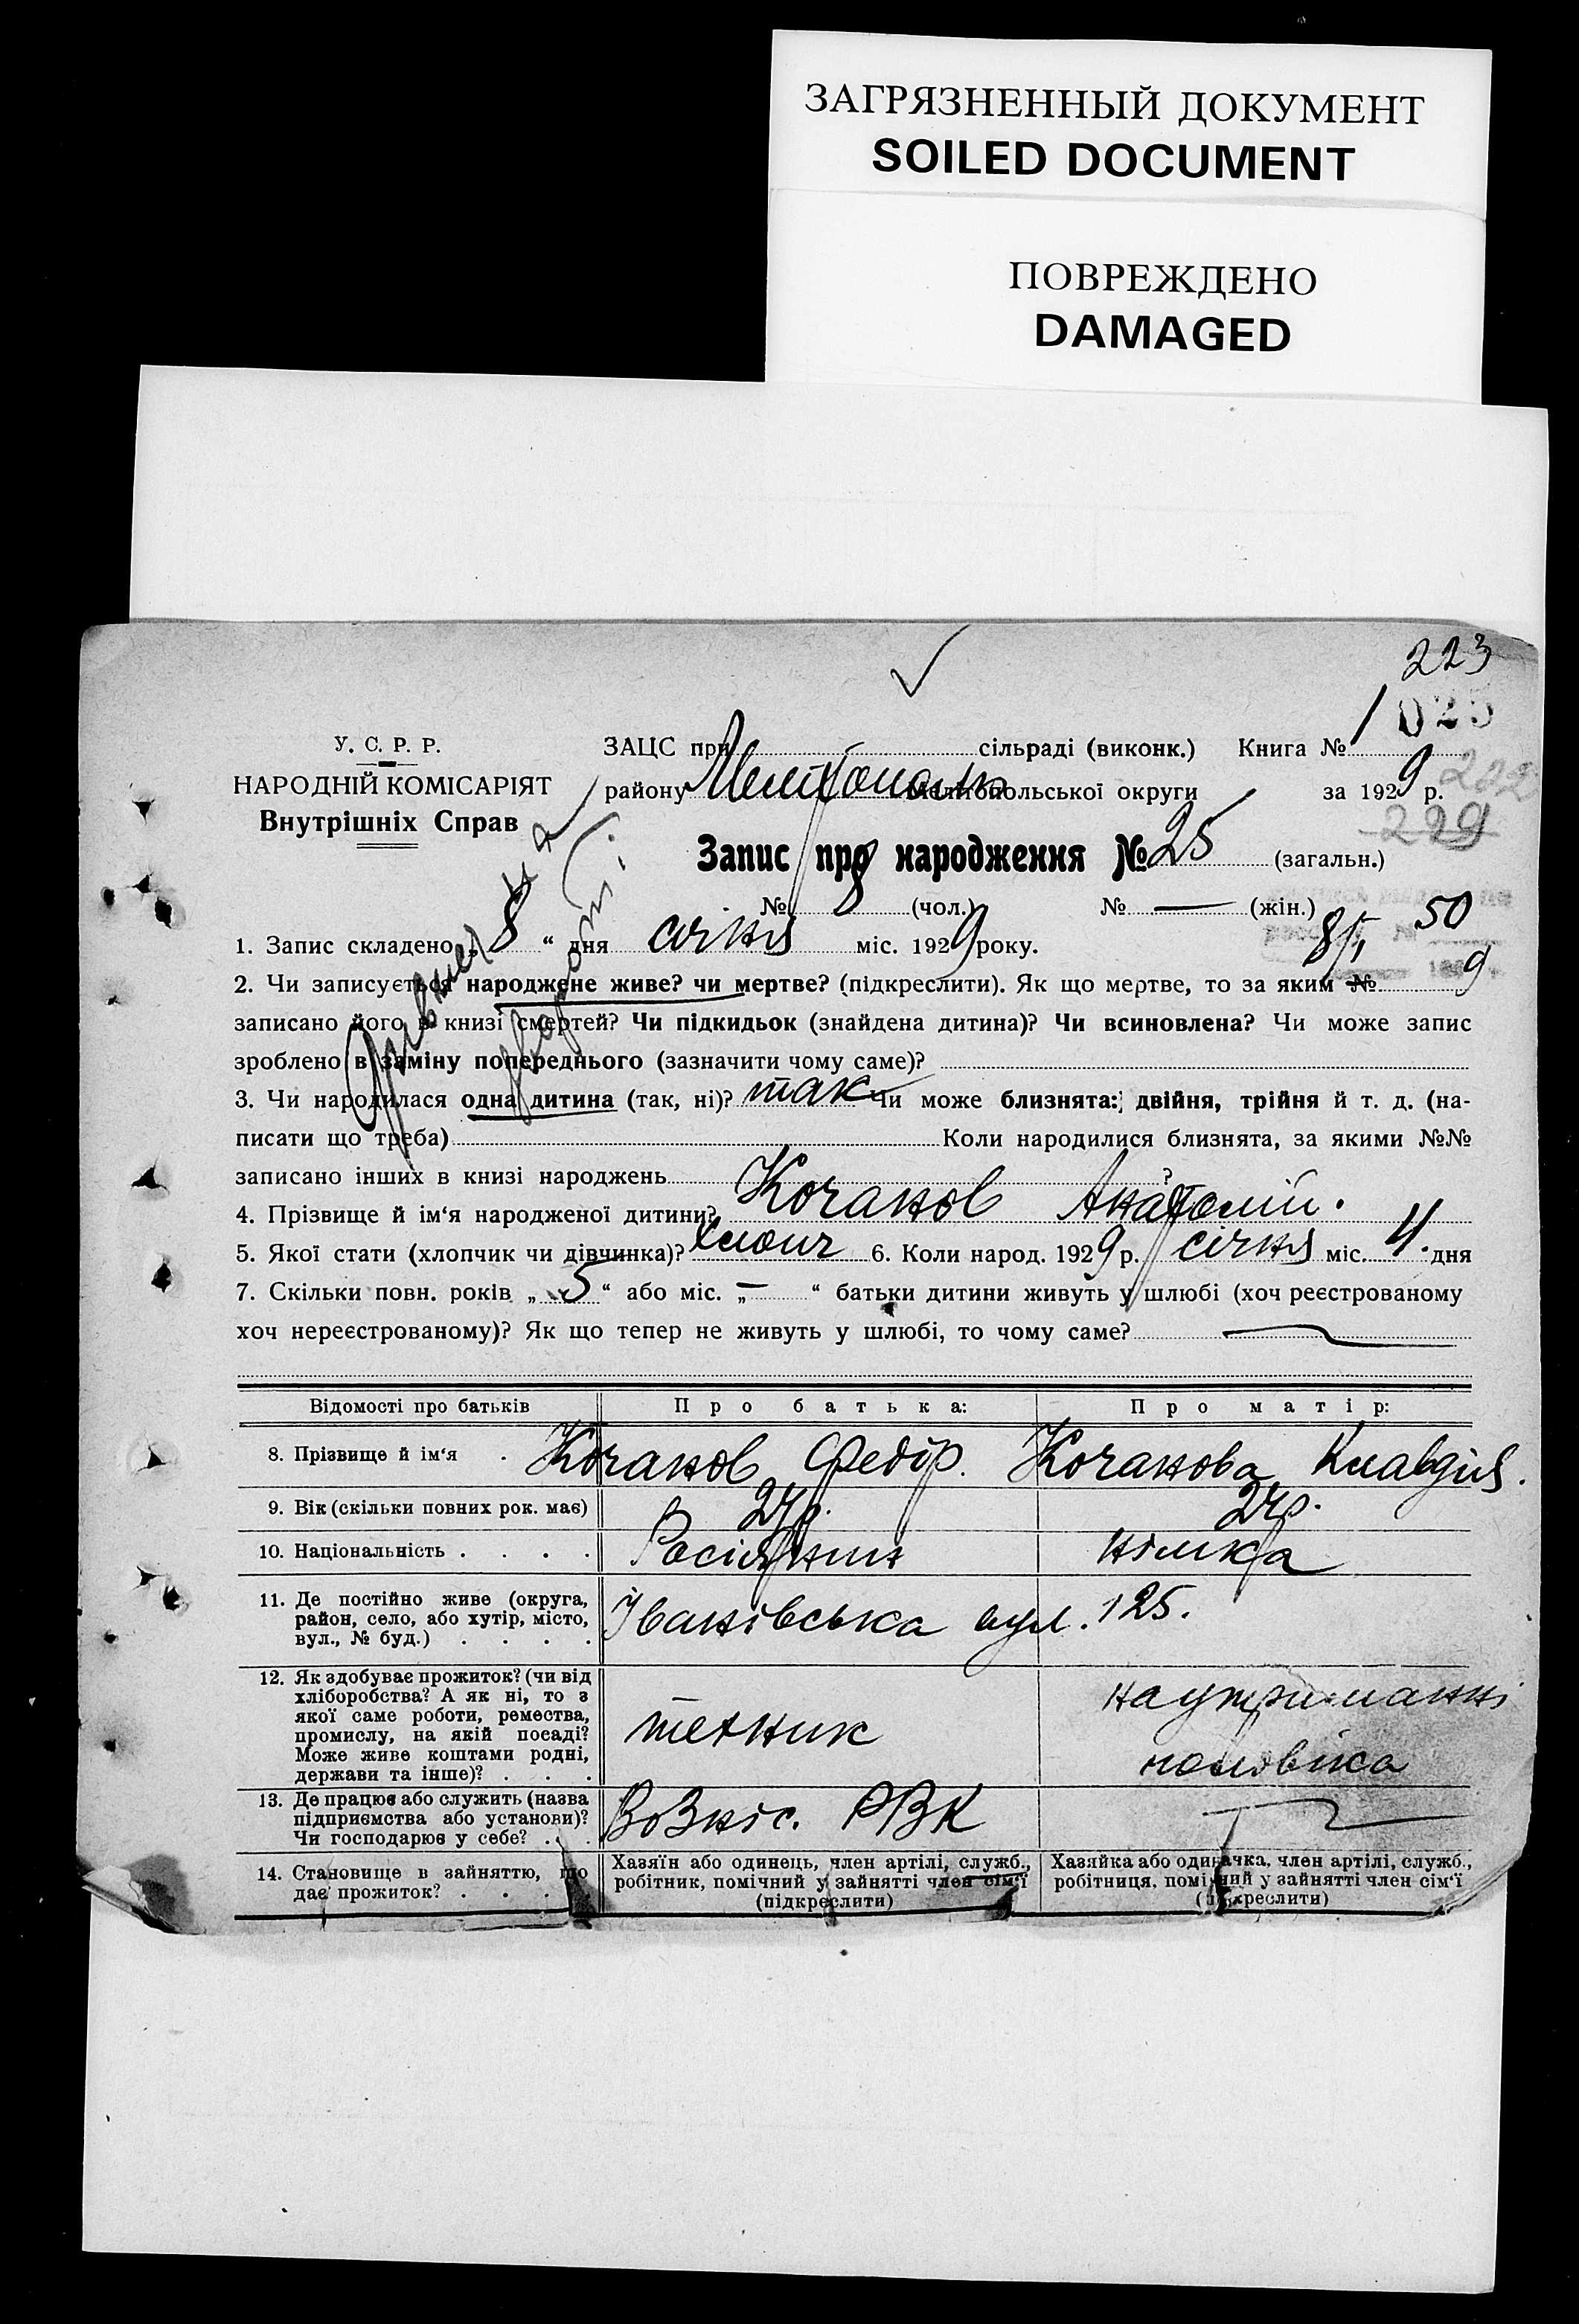 ЗАГРЯЗНЕННЫЙ ДОКУМЕНТ
SOILED DOCUMENT
ПОВРЕЖДЕНО
DAMAGED
223
У. С. Р. Р.
НАРОДНІЙ КОМІСАРІЯТ
Внутрішніх Справ
ЗАЦС при сільраді (виконк.) Книга № 1
району Мелітополь Мелітопольської округи за 1929 р.
229
Запис про народження № 25 (загальн.)
№ 8 (чол.) № — (жін.)
50
1. Запис складено „ 8 “ дня січня міс. 1929 року.
2. Чи записується народжене живе? чи мертве? (підкреслити). Як що мертве, то за яким №
записано його в книзі смертей? Чи підкидьок (знайдена дитина)? Чи всиновлена? Чи може запис
зроблено в заміну попереднього (зазначити чому саме)?
3. Чи народилася одна дитина (так, ні)? так Чи може близнята: двійня, трійня й т. д. (на-
писати що треба) Коли народилися близнята, за якими №№
записано інших в книзі народжень ?
4. Прізвище й ім‘я народженої дитини? Кочанов Анатолій.
5. Якої стати (хлопчик чи дівчинка)? хлопч 6. Коли народ. 1929 р. січня міс. 4. дня
7. Скільки повн. років „ 5 “ або міс. „ — “ батьки дитини живуть у шлюбі (хоч реєстрованому
хоч нереєстрованому)? Як що тепер не живуть у шлюбі, то чому саме?
Відомості про батьків Про батька: Про матір:
8. Прізвище й ім‘я . Кочанов Федір. Кочанова Клавдія.
9. Вік (скільки повних рок. має) 27р. 24р.
10. Національність . . . . Росіянин німка
11. Де постійно живе (округа,
район, село, або хутір, місто,
вул., № буд.) . . . .
Іванівська вул. 125.
12. Як здобуває прожиток? (чи від
хліборобства? А як ні, то з
якої саме роботи, ремества,
промислу, на якій посаді?
Може живе коштами родні,
держави та інше)? . . .
технік
на утриманні
чоловіка
13. Де працює або служить (назва
підприємства або установи)?
Чи господарює у себе? . .
Вознес. РВК
14. Становище в зайняттю, що
дає прожиток? . . . .
Хазяїн або одинець, член артілі, служб.,
робітник, помічний у зайнятті член сім‘ї
(підкреслити)
Хазяйка або одиначка, член артілі, служб.,
робітниця, помічний у зайнятті член сім‘ї
(підкреслити)